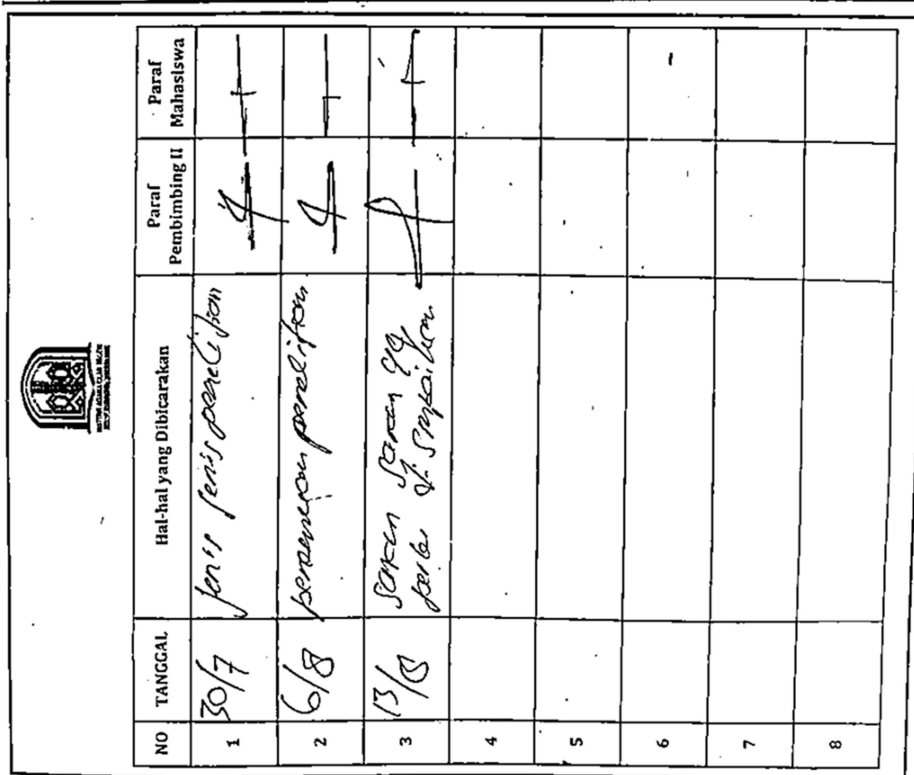 NO TANGGAL Hal-hal yang Dibicarakan Paraf Pembimbing II Paraf Mahasiswa
1 30/7 Jenis Jenis penelitian
2 6/8 penelitian
3 13/8 Saran Saran yg
perlu di
4
5
6
7
8